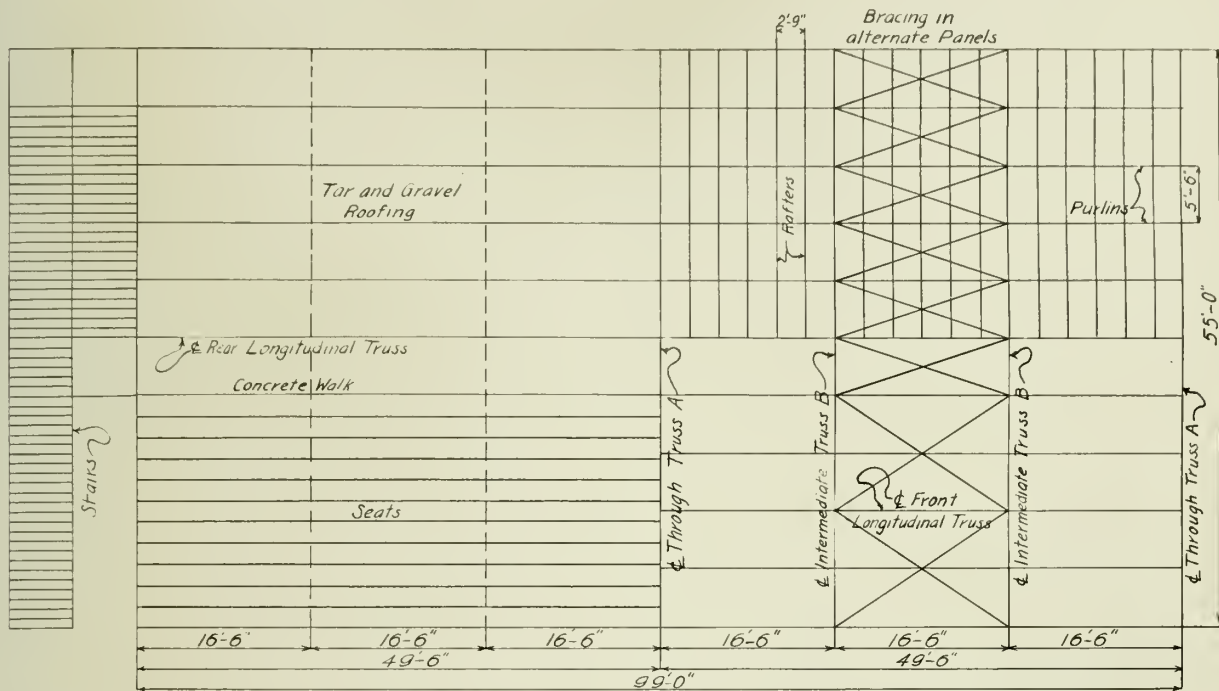 Bracing in
alternate Panels
2'-9"
Tar and Gravel
Roofing
Rafters
Purlins
5'-6"
55'-0"
℄ Rear Longitudinal Truss
Concrete Walk
Stairs
Seats
℄ Through Truss A
℄ Intermediate Truss B
℄ Front
Longitudinal Truss
℄ Intermediate Truss B
℄ Through Truss A
16'-6" 16'-6" 16'-6" 16'-6" 16'-6" 16'-6"
49'-6" 49'-6"
99'-0"